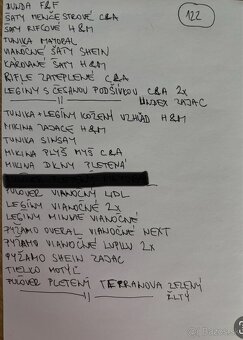 BUNDA F&F
ŠATY MENČESTROVÉ C&A
ŠATY RIFĽOVÉ H&M
TUNIKA MAYORAL
VIANOČNÉ ŠATY SHEIN
KÁROVANÉ ŠATY H&M
RIFLE ZATEPLENÉ C&A
LEGÍNY S ČESANOU PODŠÍVKOU C&A 2x
—— 11 —— UNDER ZAJAC
TUNIKA + LEGÍNY KOŽENÝ VZHĽAD H&M
MIKINA ZAJACE H&M
TUNIKA SINSAY
MIKINA PLYŠ MYŠ C&A
MIKINA DKNY PLETENÁ
PULÓVER VIANOČNÝ LIDL
LEGÍNY VIANOČNÉ 2x
LEGÍNY MINNIE VIANOČNÉ
PYŽAMO OVERAL VIANOČNÉ NEXT
PYŽAMO VIANOČNÉ LUPILU 2x
PYŽAMO SHEIN ZAJAC
TIELKO MOTÝĽ
PULÓVER PLETENÝ TERRANOVA ZELENÝ
—— 11 —— ŽLTÝ
122